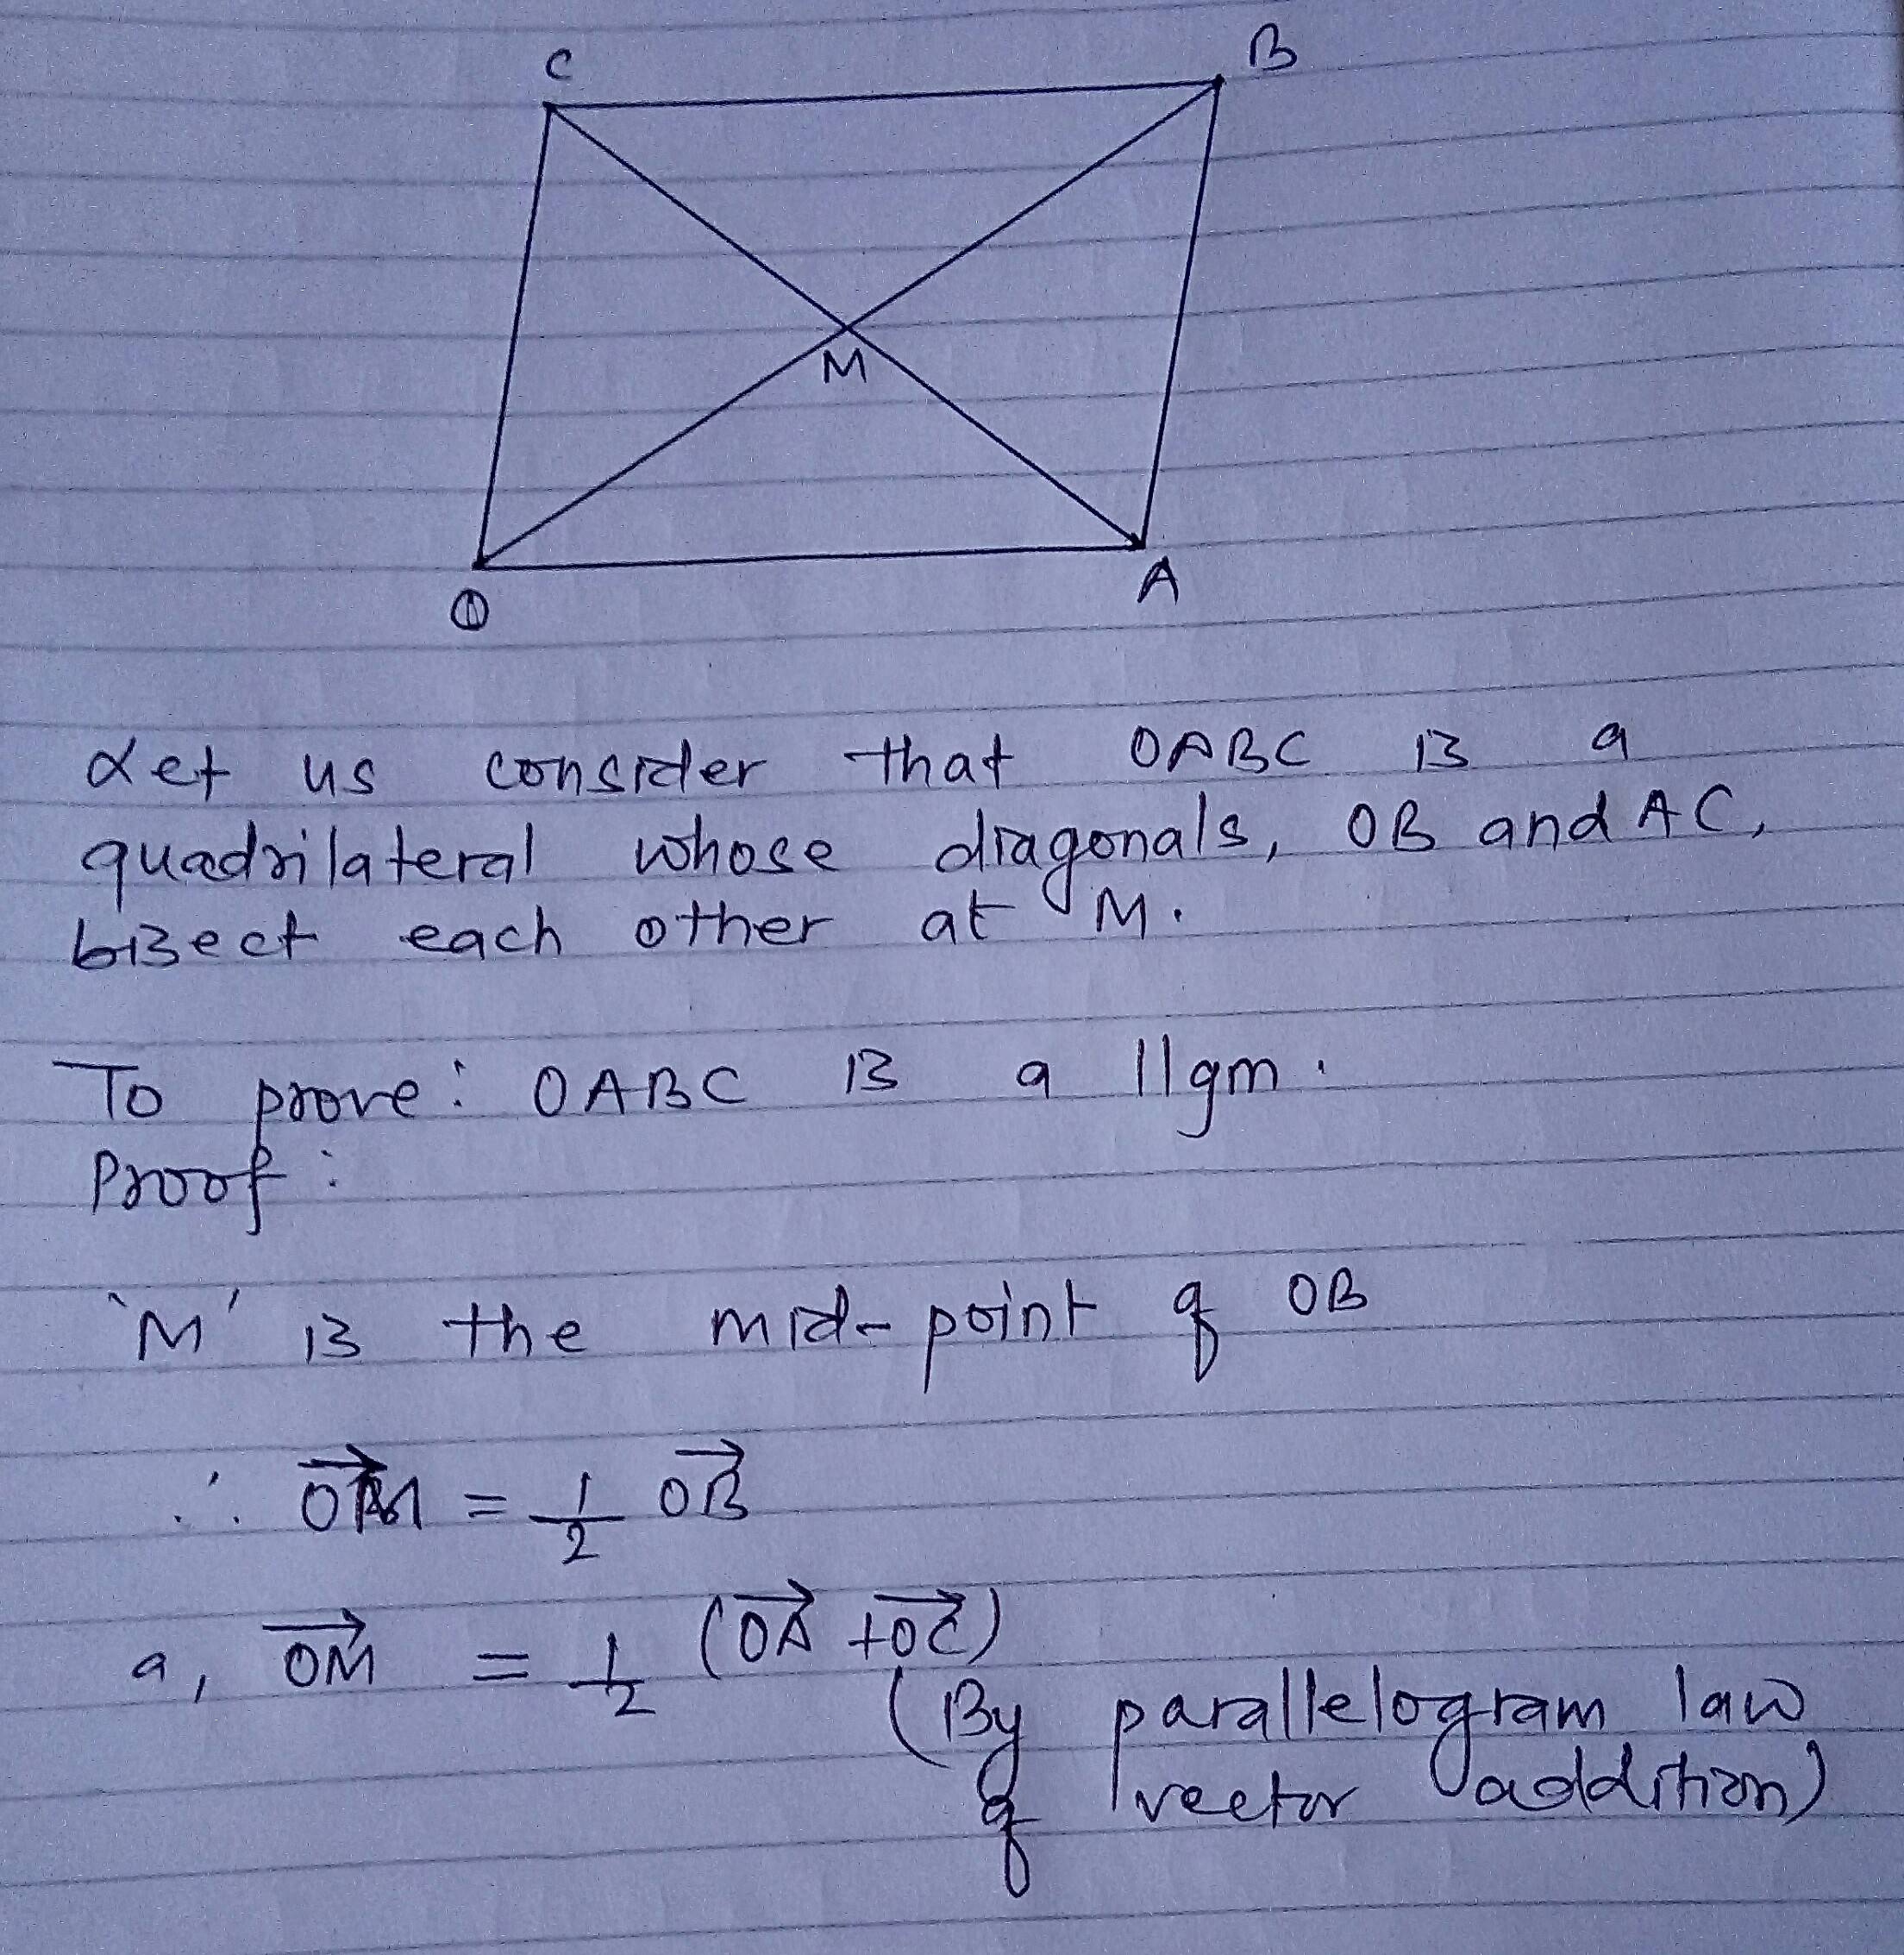 C B
M
O A
Let us consider that OABC is a
quadrilateral whose diagonals, OB and AC,
bisect each other at M.
To prove: OABC is a ||gm.
Proof:
'M' is the mid-point of OB
∴ OM⃗ = 1/2 OB⃗
a, OM⃗ = 1/2 (OA⃗ + OC⃗)
(By parallelogram law
of vector addition)